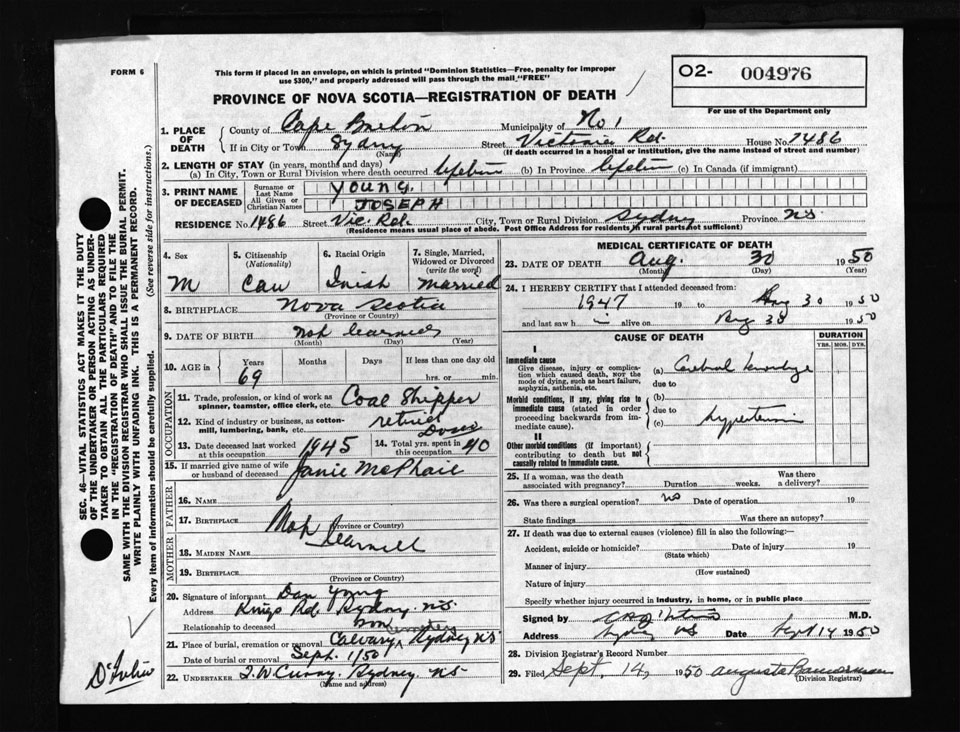 FORM 6
This form if placed in an envelope, on which is printed "Dominion Statistics—Free, penalty for improper
use $300," and properly addressed will pass through the mail "FREE"
O2- 004976
For use of the Department only
PROVINCE OF NOVA SCOTIA—REGISTRATION OF DEATH
1. PLACE OF DEATH
County of Cape Breton Municipality of No 1
If in City or Town Sydney (Name) Street Victoria Rd. House No. 1486
(If death occurred in a hospital or institution, give the name instead of street and number)
2. LENGTH OF STAY (in years, months and days)
(a) In City, Town or Rural Division where death occurred lifetime (b) In Province lifetime (c) In Canada (if immigrant)
3. PRINT NAME OF DECEASED
Surname or Last Name YOUNG.
All Given or Christian Names JOSEPH
RESIDENCE No. 1486 Street Vic. Rd. City, Town or Rural Division Sydney Province N.S.
(Residence means usual place of abode. Post Office Address for residents in rural parts not sufficient)
4. Sex M
5. Citizenship (Nationality) Can
6. Racial Origin Irish
7. Single, Married, Widowed or Divorced (write the word) Married
8. BIRTHPLACE Nova Scotia
(Province or Country)
9. DATE OF BIRTH not learned
(Month) (Day) (Year)
10. AGE in Years 69 Months Days If less than one day old
hrs. or min.
OCCUPATION
11. Trade, profession or kind of work as spinner, teamster, office clerk, etc. Coal Shipper
12. Kind of industry or business, as cotton-mill, lumbering, bank, etc. retired
13. Date deceased last worked at this occupation 1945
14. Total yrs. spent in this occupation 40
15. If married give name of wife or husband of deceased Janie McPhail
FATHER
16. Name
17. Birthplace Not learned
(Province or Country)
MOTHER
18. Maiden Name
19. Birthplace
(Province or Country)
20. Signature of informant Dan Young
Address Kings Rd. Sydney. N.S.
Relationship to deceased Son
21. Place of burial, cremation or removal Calvary Sydney NS
Date of burial or removal Sept. 1/50
22. UNDERTAKER T.W Curry. Sydney. NS
(Name and address)
MEDICAL CERTIFICATE OF DEATH
23. DATE OF DEATH Aug. 30 1950
(Month) (Day) (Year)
24. I HEREBY CERTIFY that I attended deceased from:
1947 19 to Aug 30 1950
and last saw h i alive on Aug 30 1950
CAUSE OF DEATH
DURATION
YRS. MOS. DYS.
I
Immediate cause
Give disease, injury or complication which caused death, NOT the mode of dying, such as heart failure, asphyxia, asthenia, etc.
(a) Cerebral hemorrhage
due to
Morbid conditions, if any, giving rise to immediate cause (stated in order proceeding backwards from immediate cause).
(b)
due to
(c) Hypertension
II
Other morbid conditions (if important) contributing to death but not causally related to immediate cause.
25. If a woman, was the death associated with pregnancy? Duration weeks. Was there a delivery?
26. Was there a surgical operation? no Date of operation 19
State findings Was there an autopsy?
27. If death was due to external causes (violence) fill in also the following:—
Accident, suicide or homicide? Date of injury 19
(State which)
Manner of injury
(How sustained)
Nature of injury
Specify whether injury occurred in industry, in home, or in public place
Signed by M.D.
Address Sydney NS Date Sept 14 1950
28. Division Registrar's Record Number
29. Filed Sept. 14, 1950 Augusta Bannerman
(Division Registrar)
SEC. 46—VITAL STATISTICS ACT MAKES IT THE DUTY
OF THE UNDERTAKER OR PERSON ACTING AS UNDERTAKER
TO OBTAIN ALL THE PARTICULARS REQUIRED
IN THE "REGISTRATION OF DEATH" AND TO FILE THE
SAME WITH THE DIVISION REGISTRAR WHO SHALL ISSUE THE BURIAL PERMIT.
WRITE PLAINLY WITH UNFADING INK. THIS IS A PERMANENT RECORD.
Every item of information should be carefully supplied. (See reverse side for instructions.)